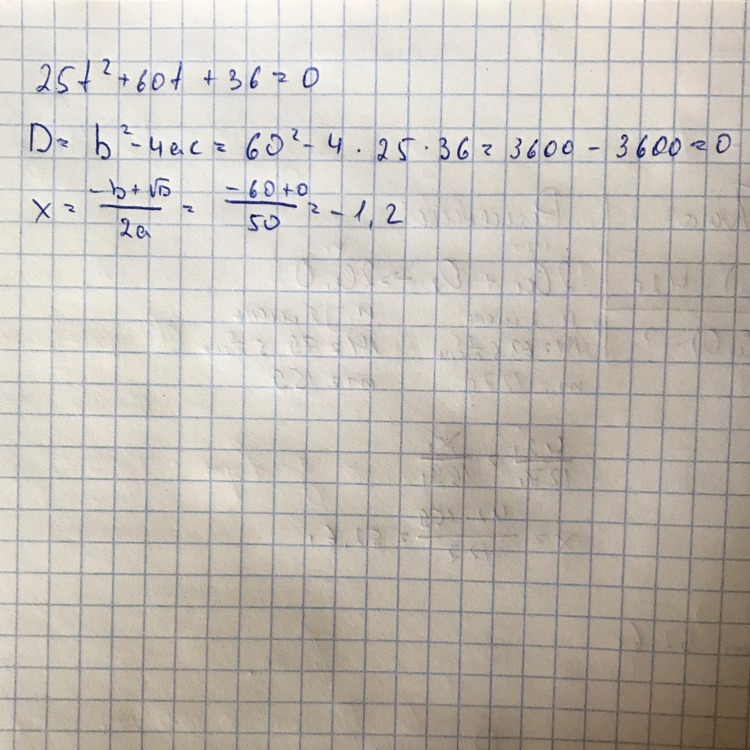 25t² + 60t + 36 = 0
D = b² - 4ac = 60² - 4 · 25 · 36 = 3600 - 3600 = 0
x = (-b + √D)/2a = (-60 + 0)/50 = -1,2